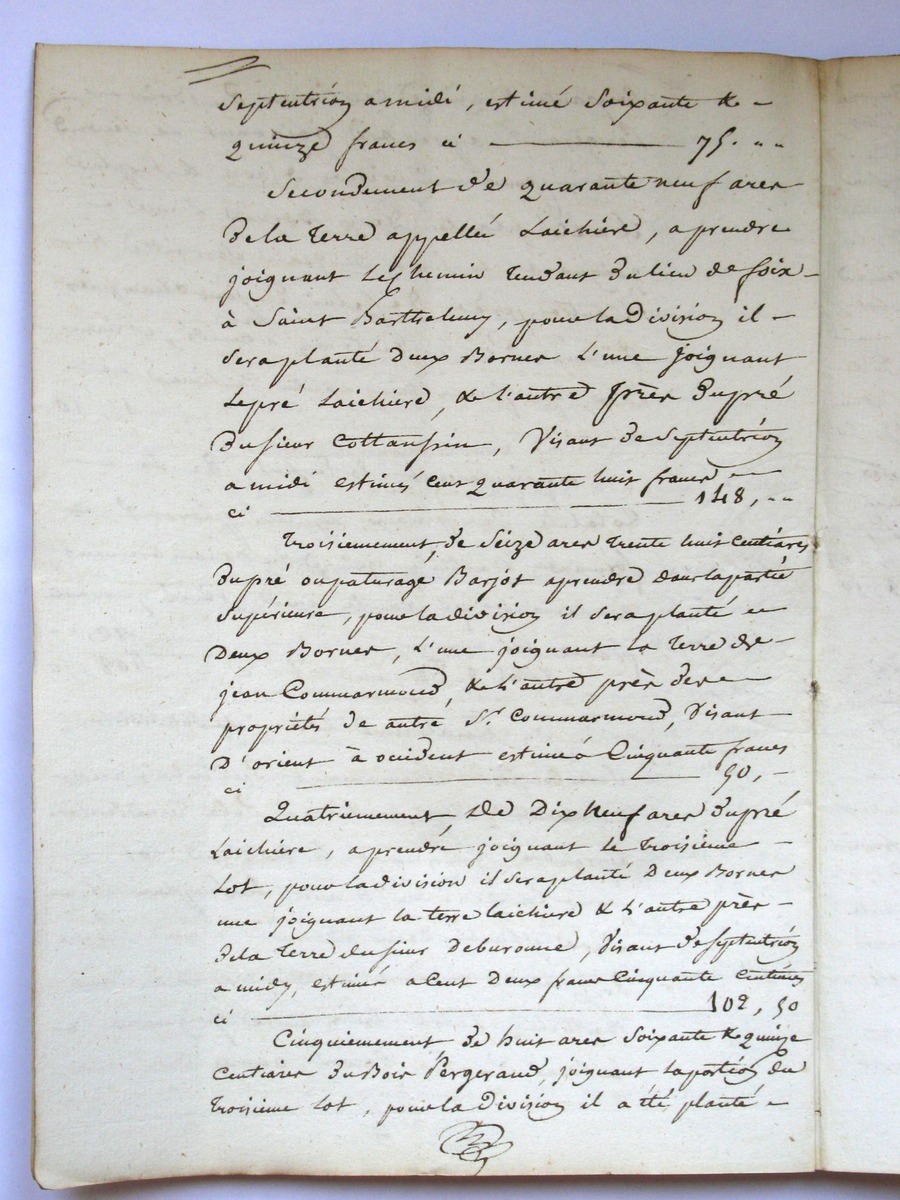 Septentrion a midi, estimé Soixante &
quinze francs ci ——— 75. " "
Secondement de quarante neuf ares
de la terre appellée Laichière, a prendre
joignant Le chemin tendant du lieu de foix
à Saint Barthelemy, pour la division il
sera planté deux Bornes L'une joignant
Le pré Laichiere, & l'autre près du pré
du sieur Cottanssin, Visant de Septentrion
a midi estimés cent quarante huit francs
ci ——— 148, " "
Troisiemement, de Seize ares trente huit Centiares
du pré ou paturage Barjot a prendre dans la partie
supérieure, pour la division il sera planté
deux Bornes, L'une joignant la Terre de
jean Commarmond, & l'autre près des
propriétés de autre Sr. Commarmond, Visant
D'orient à occident estimé à Cinquante francs
ci ——— 50, "
Quatriemement, de Dix neuf ares du pré
Laichière, a prendre joignant le Troisième
Lot, pour la division il sera planté Deux Bornes
une joignant la terre laichiere & l'autre près
de la Terre du sieur Deburonne, Visant de Septentrion
a midy, estimés a Cent Deux francs Cinquante Centimes
ci ——— 102, 50
Cinquiemement de huit ares Soixante & quinze
Centiares du Bois Pergeraud, joignant la portion du
Troisième Lot, pour la Division il a été planté